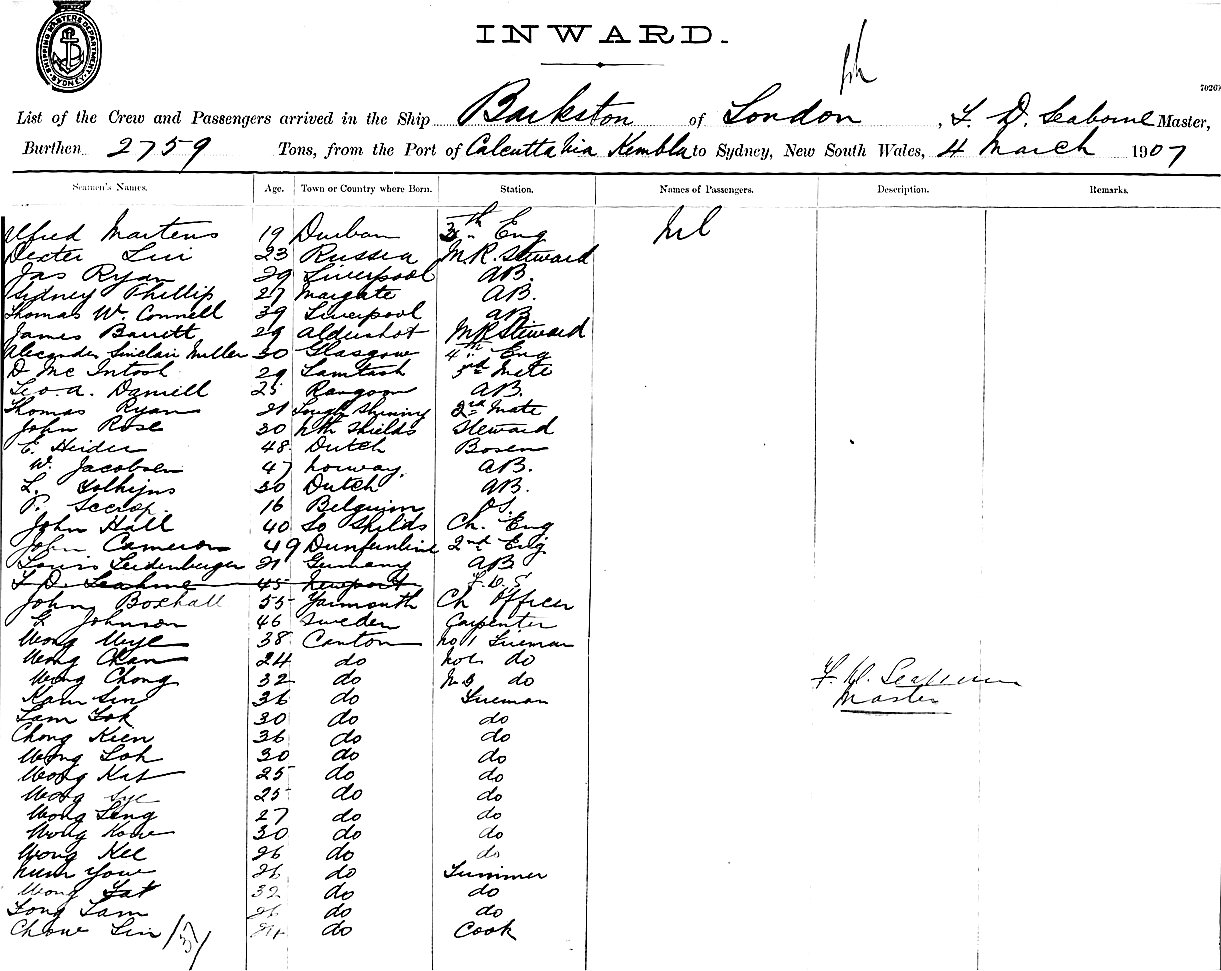 SHIPPING MASTERS DEPARTMENT SYDNEY
INWARD.
7026
List of the Crew and Passengers arrived in the Ship Barkston of London, F. D. Seaborne Master,
Burthen 2759 Tons, from the Port of Calcutta via Kembla to Sydney, New South Wales, 4 March 1907
Seamen's Names. Age. Town or Country where Born. Station. Names of Passengers. Description. Remarks.
Alfred Martens 19 Durban 5th Eng Nil
Dexter 23 Russia M.R. Steward
Jas Ryan 29 Liverpool AB.
Sydney Phillip 27 Margate AB.
Thomas W. Connell 39 Liverpool AB
James Barrett 29 Aldershot M R Steward
Alexander Sinclair Miller 30 Glasgow 4th Eng
D Mc Intosh 29 Lamlash 3rd Mate
Leo. A. Daniell 25 Rangoon AB.
Thomas Ryan 21 Lough Shinny 2nd Mate
John Rose 30 Nth Shields Steward
E. Heider 48 Dutch Bosen
W. Jacobsen 47 Norway. AB.
L. 30 Dutch AB.
P. 16 Belguim OS.
John Hall 40 So Shilds Ch. Eng
John Cameron 49 Dunfernline 2nd Eng
Louis Leidenberger 21 Germany AB
F D. 45 Newport
John Boxhall 55 Yarmouth Ch Officer
G Johnson 46 Sweden Carpenter
Wong 38 Canton No 1 Fireman
Wong Chan 24 do No 2 do
Wong Chong 32 do N 3 do
Kam Sin 36 do Fireman
Lam Fok 30 do do
Chong Kien 36 do do
Wong Loh 30 do do
Wong Kat 25 do do
Wong 25 do do
Wong Seng 27 do do
Wong 30 do do
Wong Kee 26 do do
26 do
Wong Fat 32 do do
Fong Lam 26 do do
Chow Lin 37 do Cook
Master